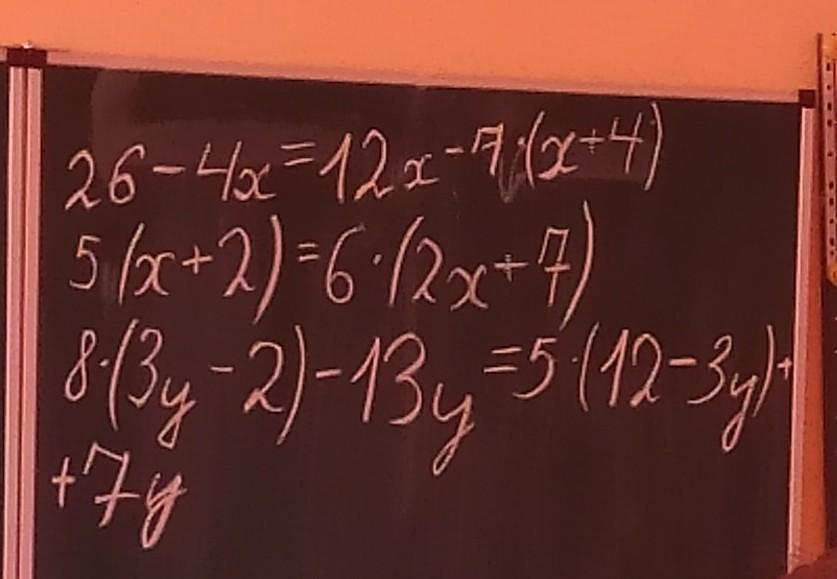 26-4x=12x-7·(x+4)
5(x+2)=6·(2x+7)
8·(3y-2)-13y=5·(12-3y)+
+7y